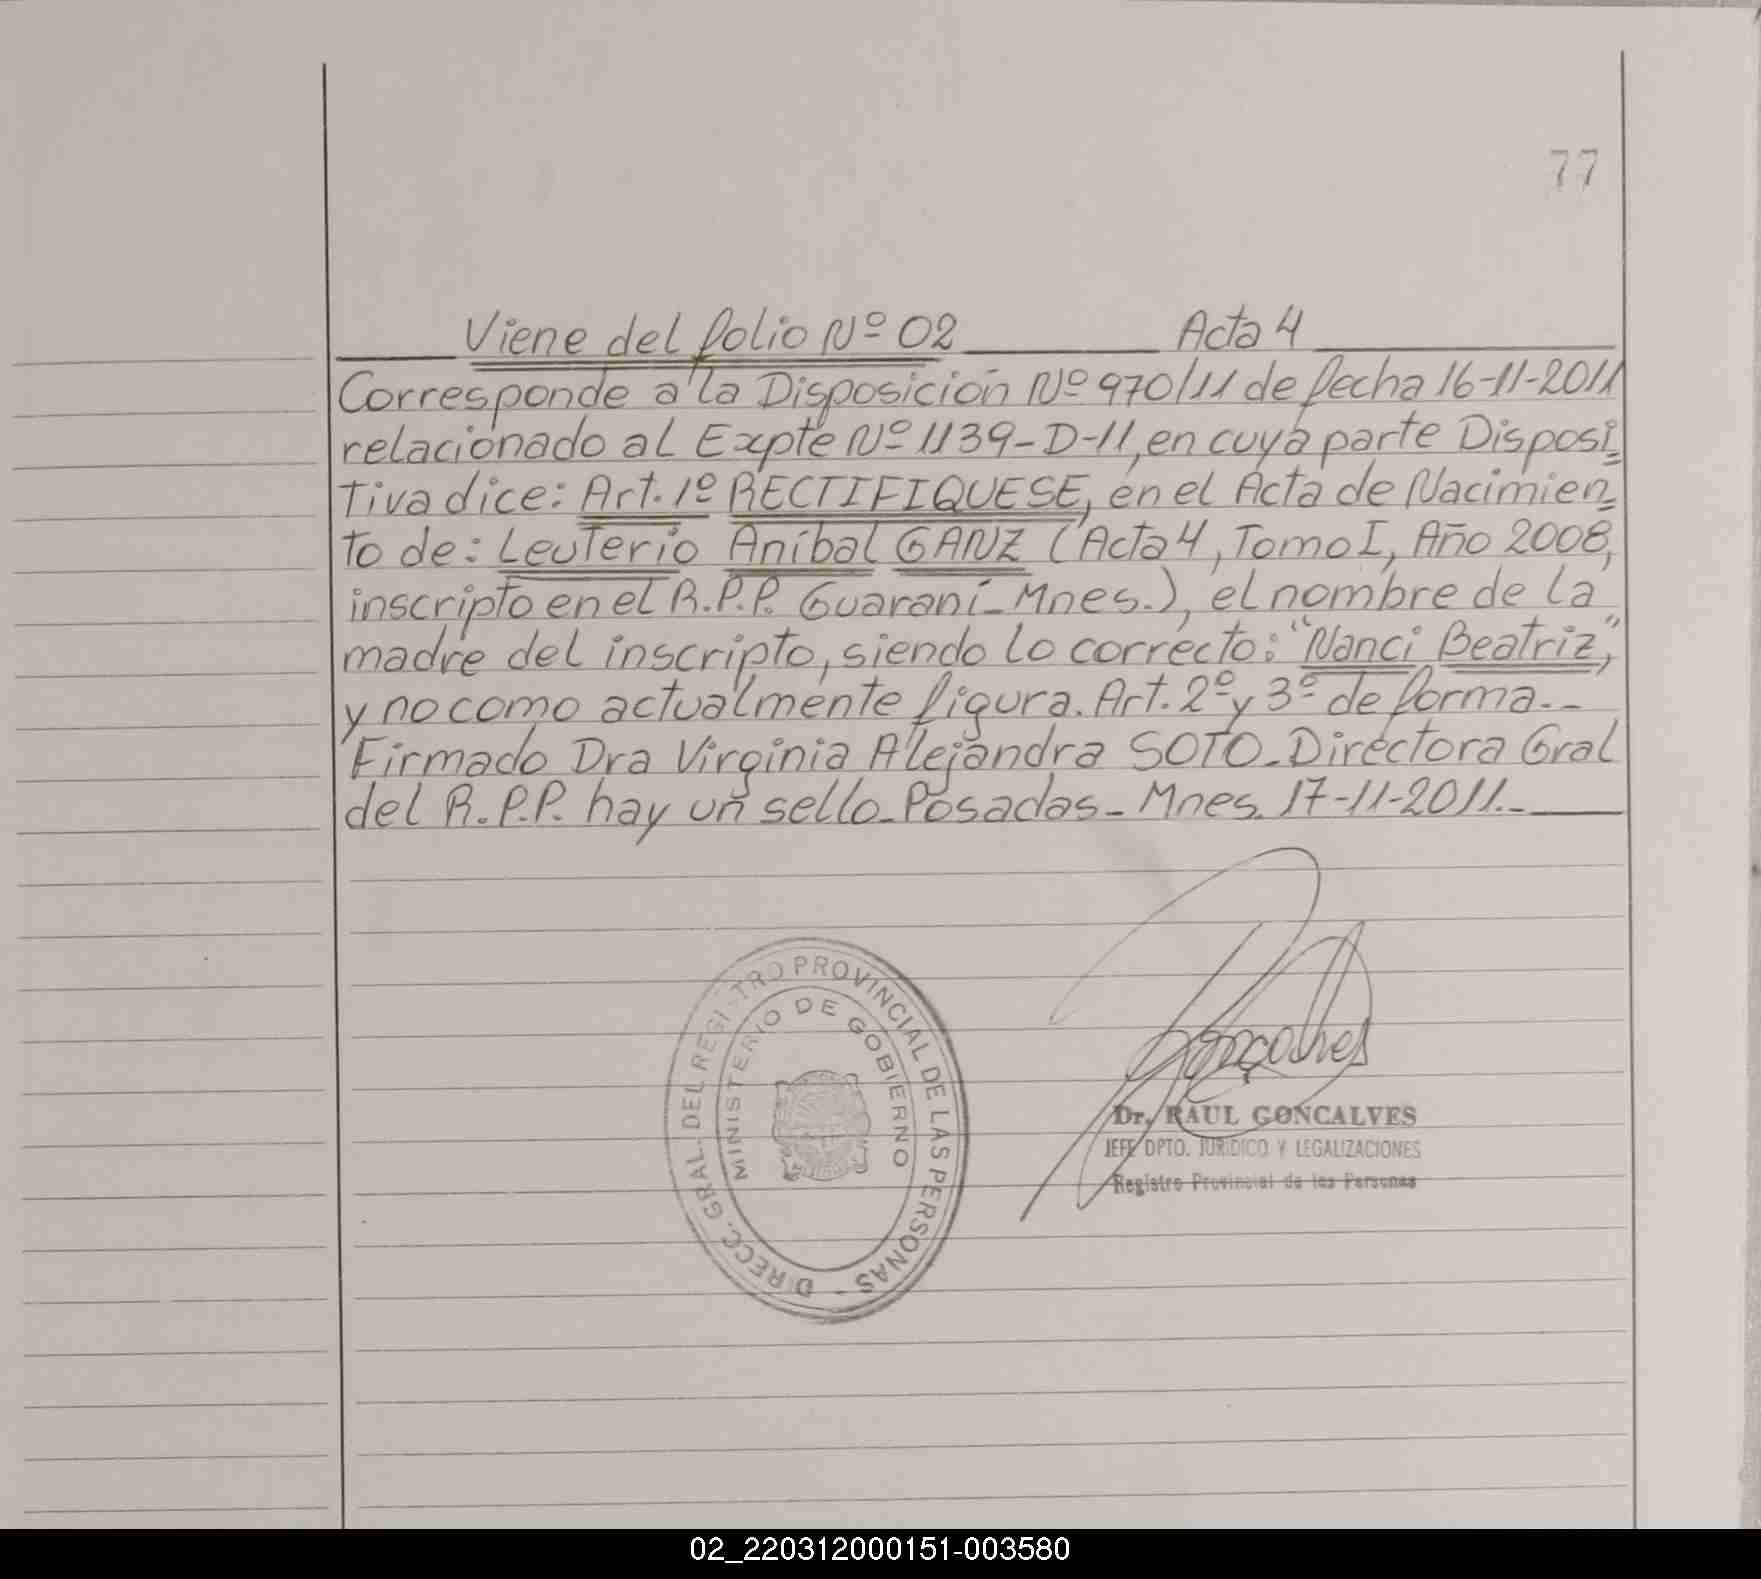 77
Viene del folio Nº 02 Acta 4
Corresponde a la Disposición Nº 970/11 de fecha 16-11-2011
relacionado al Expte Nº 1139-D-11, en cuya parte Disposi=
Tiva dice: Art. 1º RECTIFIQUESE, en el Acta de Nacimien=
to de: Leuterio Aníbal GANZ (Acta 4, Tomo I, Año 2008,
inscripto en el R.P.P. Guaraní-Mnes.), el nombre de la
madre del inscripto, siendo lo correcto: "Nanci Beatriz",
y no como actualmente figura. Art. 2º y 3º de forma.-
Firmado Dra Virginia Alejandra SOTO-Directora Gral
del R.P.P. hay un sello-Posadas-Mnes. 17-11-2011.-
DIRECC. GRAL. DEL REGISTRO PROVINCIAL DE LAS PERSONAS -
MINISTERIO DE GOBIERNO
Gonçalves
Dr. RAUL GONCALVES
JEFE DPTO. JURIDICO Y LEGALIZACIONES
Registro Provincial de las Personas
02_220312000151-003580